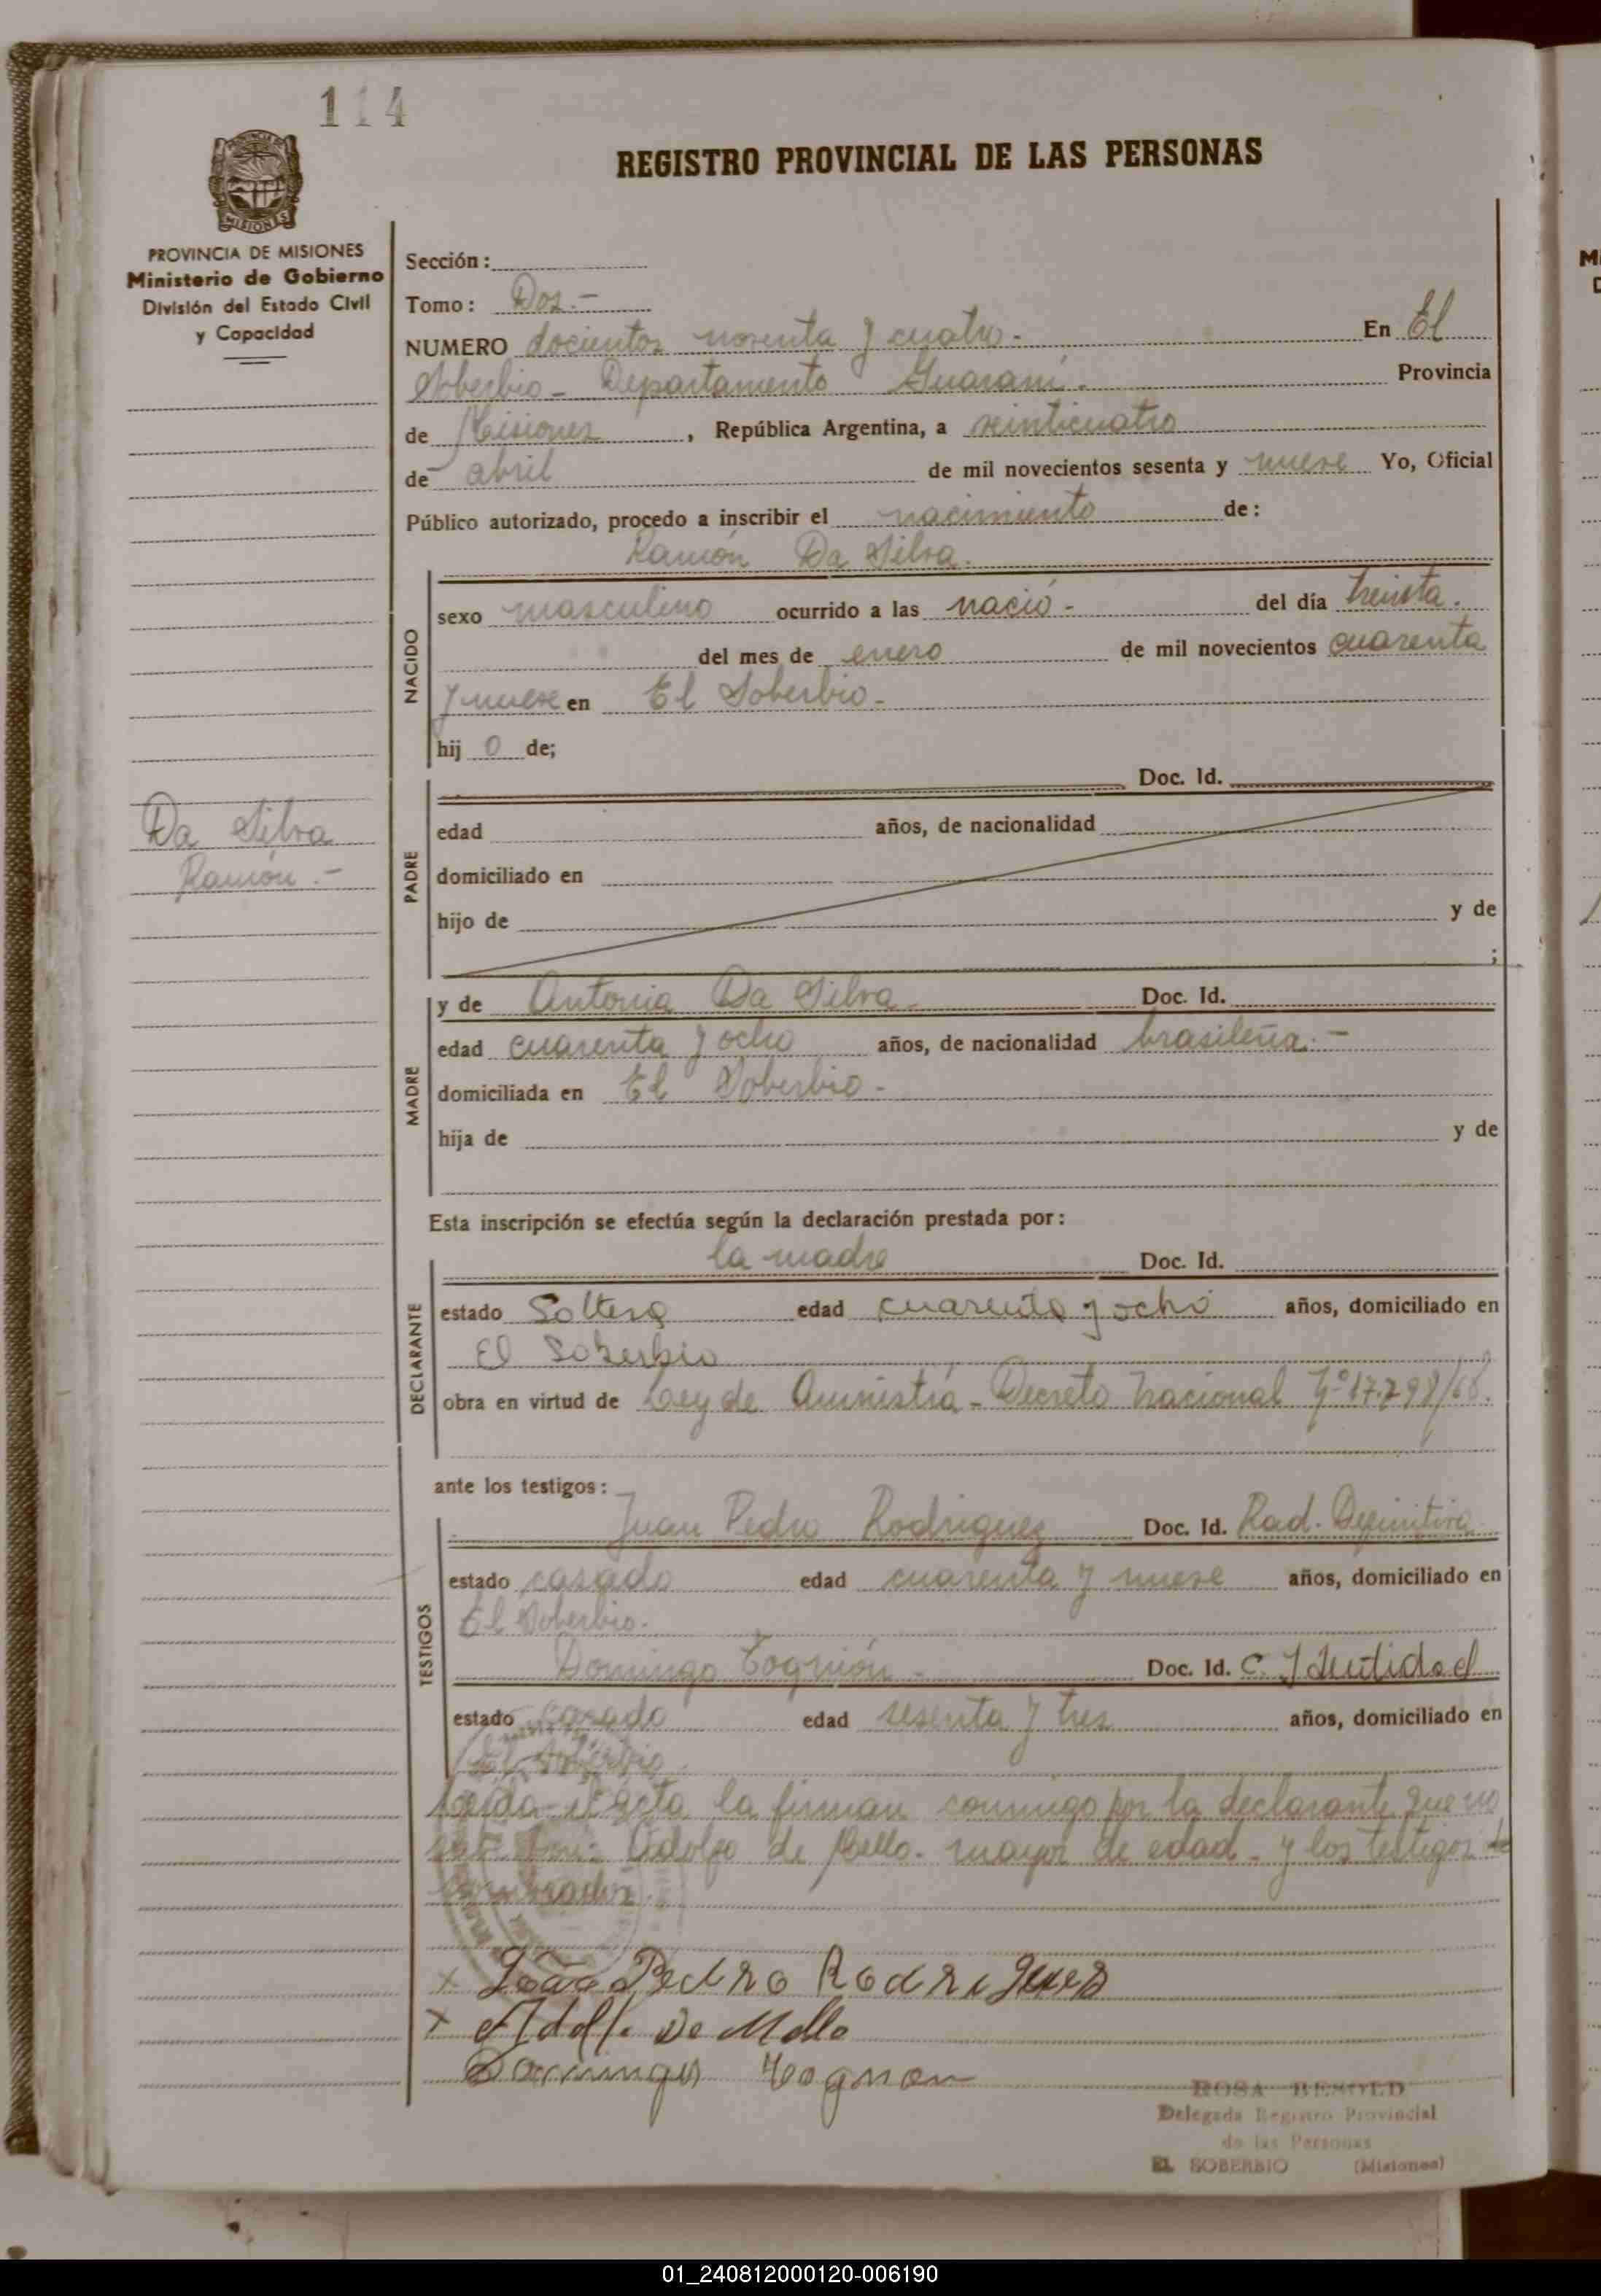 114
REGISTRO PROVINCIAL DE LAS PERSONAS
MISIONES
PROVINCIA DE MISIONES
Ministerio de Gobierno
División del Estado Civil
y Capacidad
Sección:
Tomo: Dos.-
NUMERO docientos noventa y cuatro.- En El
Soberbio - Departamento Guaraní.- Provincia
de Misiones, República Argentina, a veinticuatro
de abril de mil novecientos sesenta y nueve Yo, Oficial
Público autorizado, procedo a inscribir el nacimiento de:
Ramón Da Silva.
NACIDO
sexo masculino ocurrido a las nació - del día treinta.
del mes de enero de mil novecientos cuarenta
y nueve en El Soberbio.-
hij o de;
PADRE
Doc. Id.
edad años, de nacionalidad
domiciliado en
hijo de y de
;
Da Silva
Ramón.-
MADRE
y de Antonia Da Silva.- Doc. Id.
edad cuarenta y ocho años, de nacionalidad brasileña.-
domiciliada en El Soberbio.-
hija de y de
Esta inscripción se efectúa según la declaración prestada por:
DECLARANTE
la madre Doc. Id.
estado Soltera edad cuarenta y ocho años, domiciliado en
El Soberbio
obra en virtud de Ley de Amnistía - Decreto Nacional Nº 17.798/68.
ante los testigos:
TESTIGOS
Juan Pedro Rodriguez Doc. Id. Rad. Definitiva
estado casado edad cuarenta y nueve años, domiciliado en
El Soberbio.-
Domingo Tognión.- Doc. Id. C. Identidad
estado casado edad sesenta y tres años, domiciliado en
El Soberbio
Leída el acta la firman conmigo por la declarante que no
Adolfo de Mello. mayor de edad - y los testigos
x João Pedro Rodrigues
x Adolfo De Mello
Domingos Tognon
ROSA BESOLD
Delegada Registro Provincial
de las Personas
EL SOBERBIO (Misiones)
01_240812000120-006190